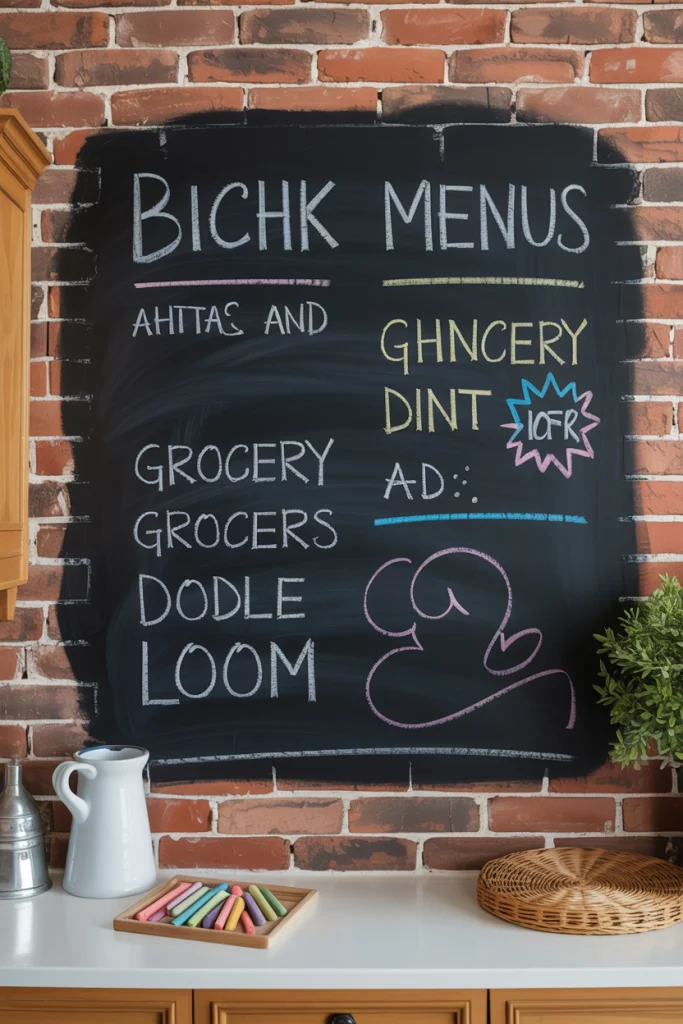 BICHK MENUS
AHTTAS AND
GROCERY
GROCERS
DODLE
LOOM
GHNCERY
DINT
IOFR
AD